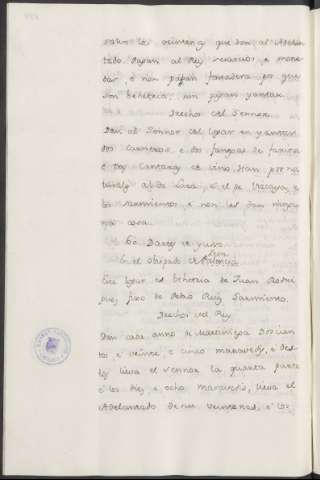 salvo los quinientos que dan al Adelan
tado. Pagan al Rey servicios, e mone
das, e non pagan fonsadera por que
son behetria, nin pagan yantar.
Derechos del Sennor.
Dan al Sennor del logar en yantar
dos carneros, e dos fanegas de farina
e dos cantaras de vino. Han por na
turales al de Lara, e el de Vizcaya, e
los sarmientos, e non les dan ninguna
cosa.
60 Barrio de yuso.
En el obispado de Palencia
Leon
Este logar es behetria de Juan Rodri
guez fijo de Pedro Ruiz Sarmiento.
Derechos del Rey
Dan cada anno de Martiniega Docien
tos e veinte, e cinco maravedis, e des
tos lieva el sennor la quarta parte
e los diez e ocho maravedis, lieva el
Adelantado de sus veintenas, e los